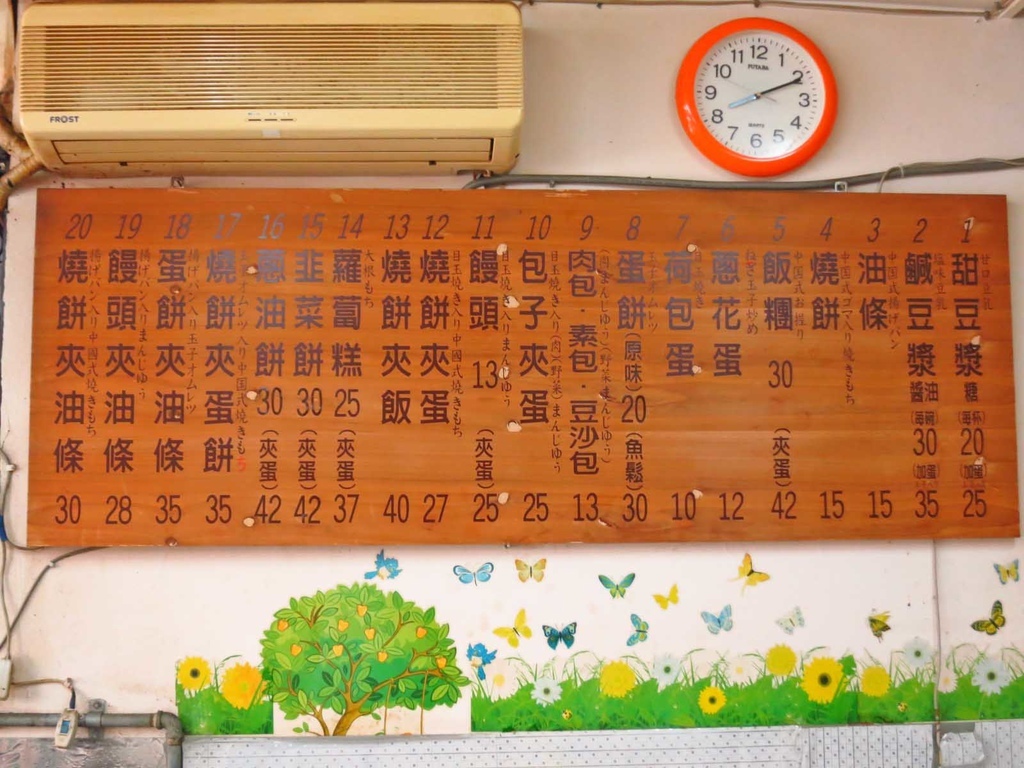 FROST
12
1
2
3
4
5
6
7
8
9
10
FUTABA
QUARTZ
1
甜豆漿
糖
(每杯)
20
(加蛋)
25
甘口豆乳
2
鹹豆漿
醬油
(每碗)
30
(加蛋)
35
塩味豆乳
3
油條
15
中国式揚げパン
4
燒餅
15
中国式ゴマ入り焼きもち
5
飯糰
30
(夾蛋)
42
中国式お握り
6
蔥花蛋
12
ねぎ玉子炒め
7
荷包蛋
10
目玉焼き
8
蛋餅(原味)20(魚鬆)
30
玉子オムレツ
9
肉包·素包·豆沙包
13
(肉まんじゅう)(野菜まんじゅう)
10
包子夾蛋
25
目玉焼き入り(肉)(野菜)まんじゅう
11
饅頭
13
(夾蛋)
25
目玉焼き入りまんじゅう
12
燒餅夾蛋
27
目玉焼き入り中國式焼きもち
13
燒餅夾飯
40
14
蘿蔔糕
25
(夾蛋)
37
大根もち
15
韭菜餅
30
(夾蛋)
42
16
蔥油餅
30
(夾蛋)
42
17
燒餅夾蛋餅
35
玉子オムレツ入り中国式焼きもち
18
蛋餅夾油條
35
揚げパン入り玉子オムレツ
19
饅頭夾油條
28
揚げパン入りまんじゅう
20
燒餅夾油條
30
揚げパン入り中國式焼きもち